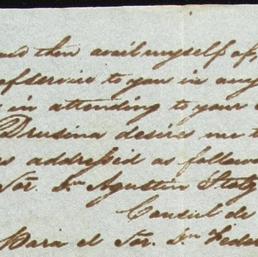 and then avail myself of
of service to you in any
in attending to your
Drusina desires me t
s addressed as follows
Sor. Dn Agustin Stolz
Consul de
Para el Sor. Dn Feder